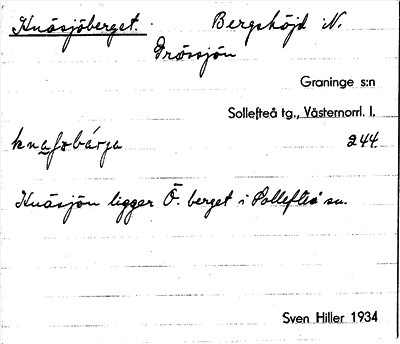 Knäsjöberget. Bergshöjd N.
Grössjön
Graninge s:n
Sollefteå tg., Västernorrl. l.
244
Knäsjön ligger Ö. berget i Sollefteå sn.
Sven Hiller 1934